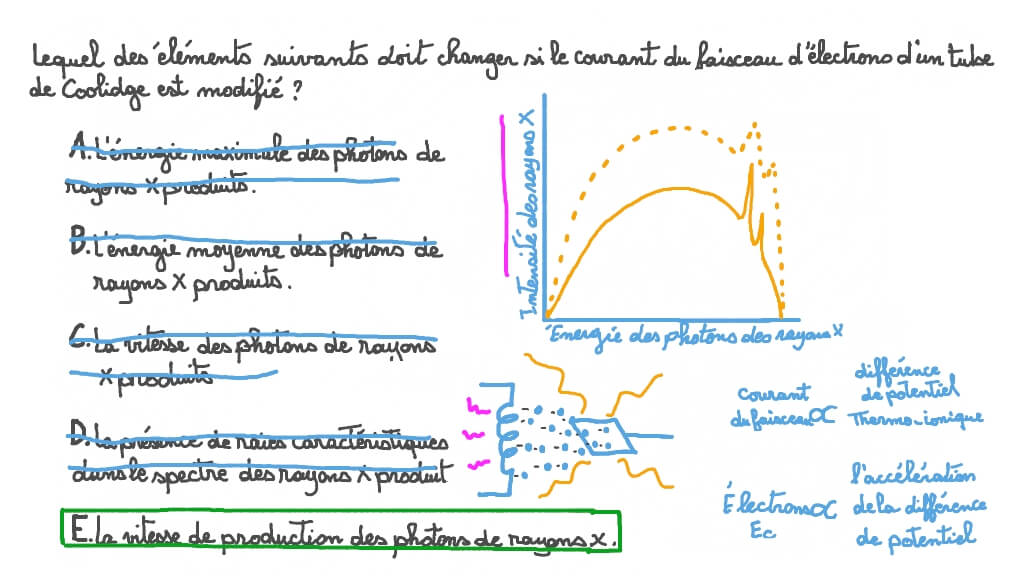 Lequel des éléments suivants doit changer si le courant du faisceau d'électrons d'un tube
de Coolidge est modifié ?
A. L'énergie maximale des photons de
rayons X produits.
B. L'énergie moyenne des photons de
rayons X produits.
C. La vitesse des photons de rayons
X produits
D. La présence de raies caractéristiques
dans le spectre des rayons X produit
E. La vitesse de production des photons de rayons X.
Intensité des rayons X
Énergie des photons des rayons X
Courant
du faisceau ∝
différence
de potentiel
Thermo-ionique
Électrons ∝
Ec
l'accélération
de la différence
de potentiel